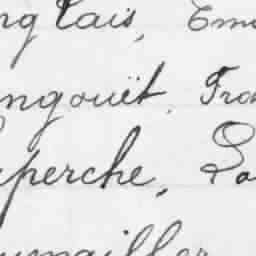 nglais, Em
ngouët, Tro
perche, La
uenailler